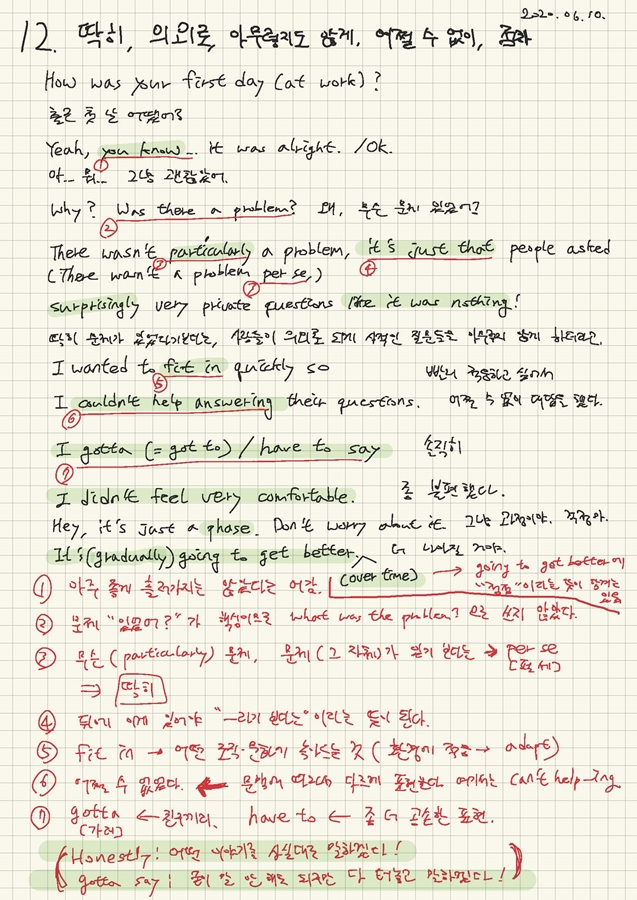 2020.06.10.
12. 딱히, 의외로, 아무렇지도 않게, 어쩔 수 없이, 점차
How was your first day (at work)?
출근 첫 날 어땠어?
Yeah, you know... it was alright. /Ok.
①
아... 뭐... 그냥 괜찮았어.
Why? Was there a problem? 왜, 무슨 문제 있었어?
②
There wasn't particularly a problem, it's just that people asked
③ ④
(There wasn't a problem per se,)
③
surprisingly very private questions like it was nothing!
딱히 문제가 있었다기보다는, 사람들이 의외로 되게 사적인 질문들을 아무렇지 않게 하더라고.
I wanted to fit in quickly so 빨리 적응하고 싶어서
⑤
I couldn't help answering their questions. 어쩔 수 없이 대답을 했다.
⑥
I gotta (= got to) / have to say 솔직히
⑦
I didn't feel very comfortable. 좀 불편했다.
Hey, it's just a phase. Don't worry about it. 그냥 과정이야. 걱정마.
It's (gradually) going to get better. 더 나아질 거야.
(over time) → going to get better에
"점점"이라는 뜻이 함께는 있음
① 아주 좋게 흘러가지는 않았다는 어감.
② 문제 "있었어?"가 핵심이므로 what was the problem? 으로 쓰지 않았다.
③ 무슨 (particularly) 문제, 문제(그 자체)가 있기 보다는 → per se
[펄 세]
⇒ 딱히
④ 뒤에 이게 있어야 "~라기 보다는" 이라는 뜻이 된다.
⑤ fit in → 어떤 조직·문화에 녹아드는 것 (환경에 적응 → adapt)
⑥ 어쩔 수 없었다. ← 문맥에 따라서 다르게 표현한다. 여기서는 can't help -ing
⑦ gotta ← 친구끼리. have to ← 좀 더 공손한 표현.
[가러]
(Honestly; 어떤 이야기를 사실대로 말하겠다!
gotta say; 굳이 말 안 해도 되지만 다 터놓고 말하겠다!)